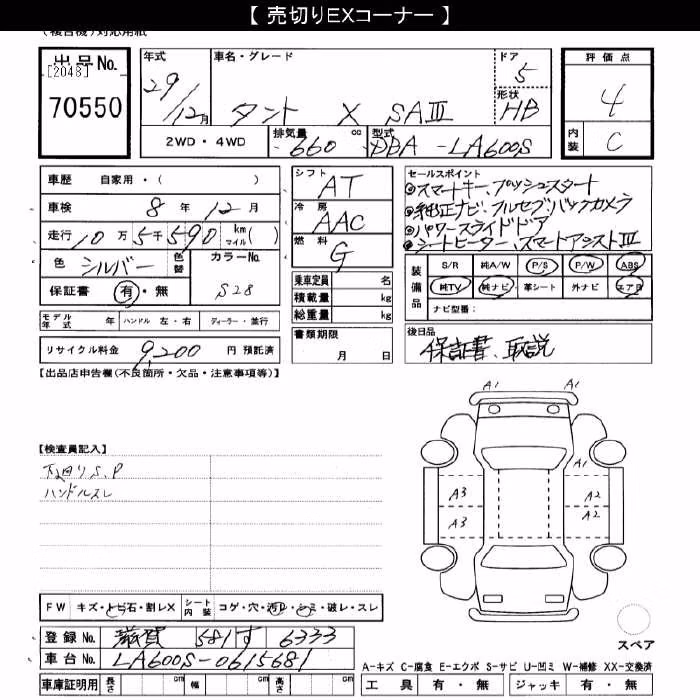 【 売切りEXコーナー 】
(複合機)対応用紙
出品No. [2048] 70550
年式 29/12月
車名・グレード タント X SAⅢ
ドア 5
形状 HB
評価点 4
内装 C
2WD・4WD
排気量 660 cc
型式 DBA-LA600S
車歴 自家用・( )
車検 8年12月
走行 10万5千590 km マイル( )
色 シルバー 色替
カラーNo. S28
保証書 有・無
シフト AT
冷房 AAC
燃料 G
乗車定員 名
積載量 kg
総重量 kg
セールスポイント
◎スマートキー、プッシュスタート
◎純正ナビ、フルセグ、バックカメラ
◎パワースライドドア
◎シートヒーター、スマートアシストⅢ
装備品 S/R 純A/W P/S P/W ABS
純TV 純ナビ 革シート 外ナビ エアB
ナビ型番:
モデル年式 年 ハンドル 左・右 ディーラー・並行
書類期限 月 日
後日品 保証書、取説
リサイクル料金 9,200 円 預託済
【出品店申告欄(不良箇所・欠品・注意事項等)】
【検査員記入】
下回りS、P
ハンドルスレ
A1 A1
A1
A3 A2
A3 A2
FW キズ・トビ石・割レX
シート内装 コゲ・穴・汚レ・シミ・破レ・スレ
登録No. 滋賀 581 す 6333
車台No. LA600S-0615681
スペア
A-キズ C-腐食 E-エクボ S-サビ U-凹ミ W-補修 XX-交換済
車庫証明用 長さ cm 幅 cm 高さ cm
工具 有・無 ジャッキ 有・無